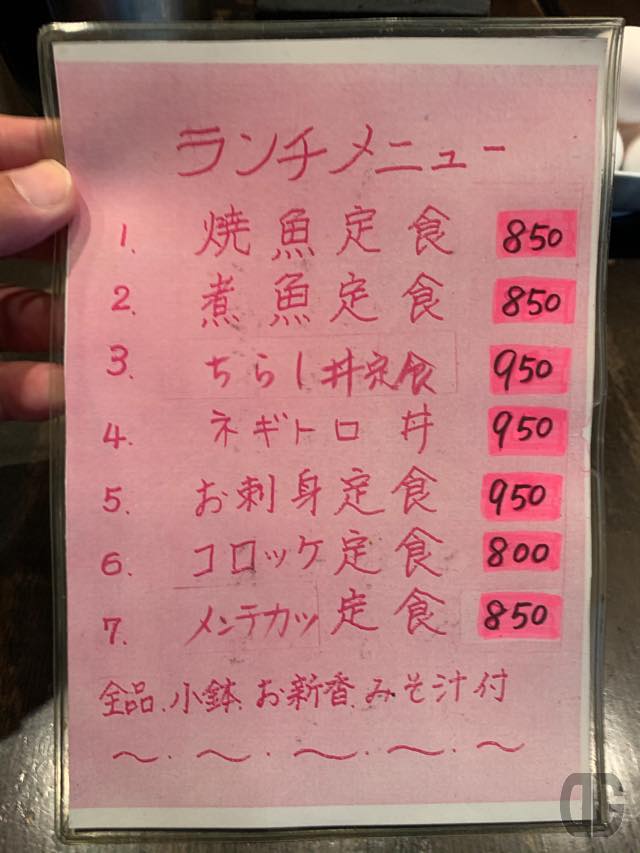 ランチメニュー
1. 焼魚定食 850
2. 煮魚定食 850
3. ちらし丼定食 950
4. ネギトロ丼 950
5. お刺身定食 950
6. コロッケ定食 800
7. メンテカツ定食 850
全品、小鉢、お新香、みそ汁付
〜・〜・〜・〜・〜